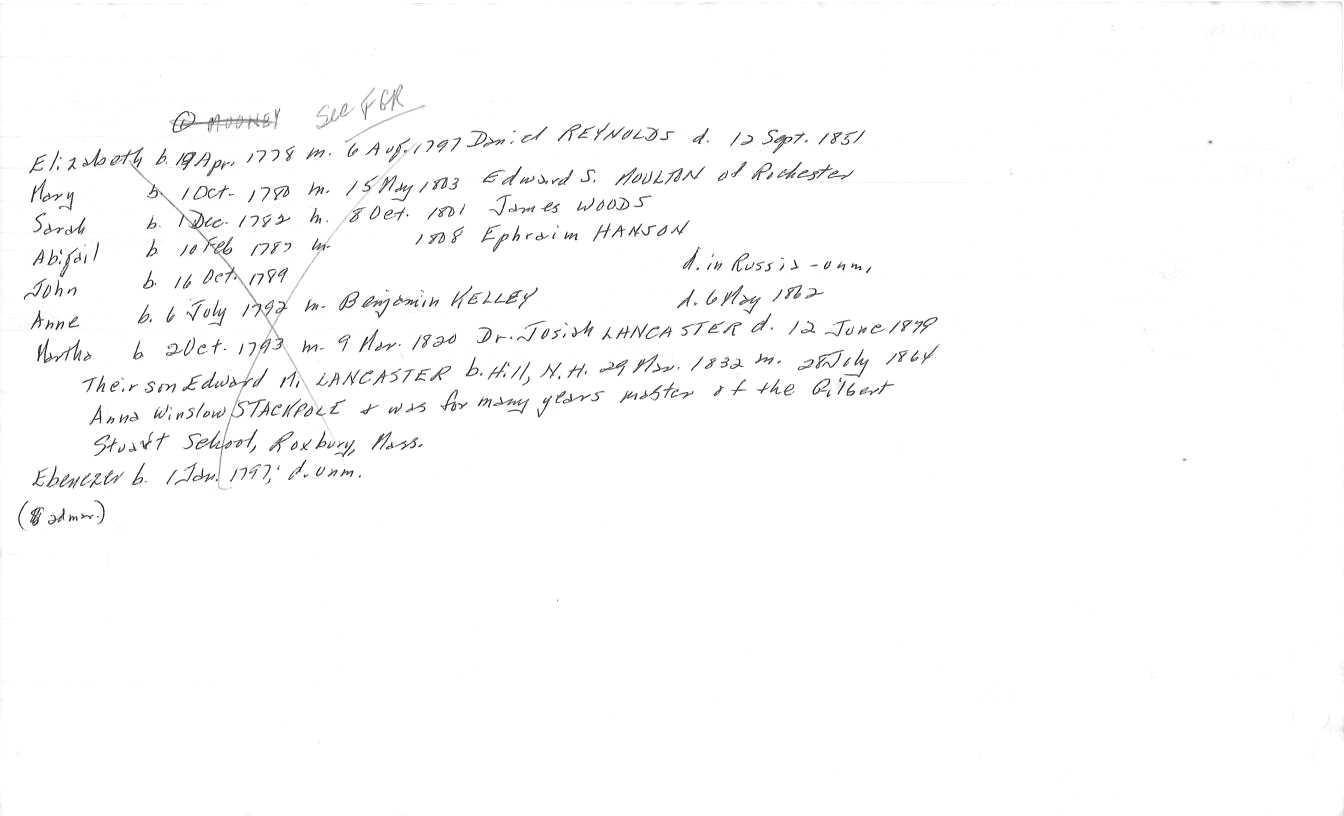 ① MOONEY See FGR
Elizabeth b. 19 Apr. 1778 m. 6 Aug. 1797 Daniel REYNOLDS d. 12 Sept. 1851
Mary b. 1 Oct. 1780 m. 15 May 1803 Edward S. MOULTON of Rochester
Sarah b. 1 Dec. 1782 m. 8 Oct. 1801 James WOODS
Abigail b 10 Feb 1787 m. 1808 Ephraim HANSON
John b. 16 Oct. 1789 d. in Russia - unm.
Anne b. 6 July 1792 m. Benjamin KELLEY d. 6 May 1862
Martha b 2 Oct. 1793 m. 9 Mar. 1820 Dr. Josiah LANCASTER d. 12 June 1879
Their son Edward M. LANCASTER b. Hill, N.H. 29 Mar. 1832 m. 28 July 1864
Anna Winslow STACKPOLE & was for many years master of the Gilbert
Stuart School, Roxbury, Mass.
Ebenezer b. 1 Jan. 1797; d. unm.